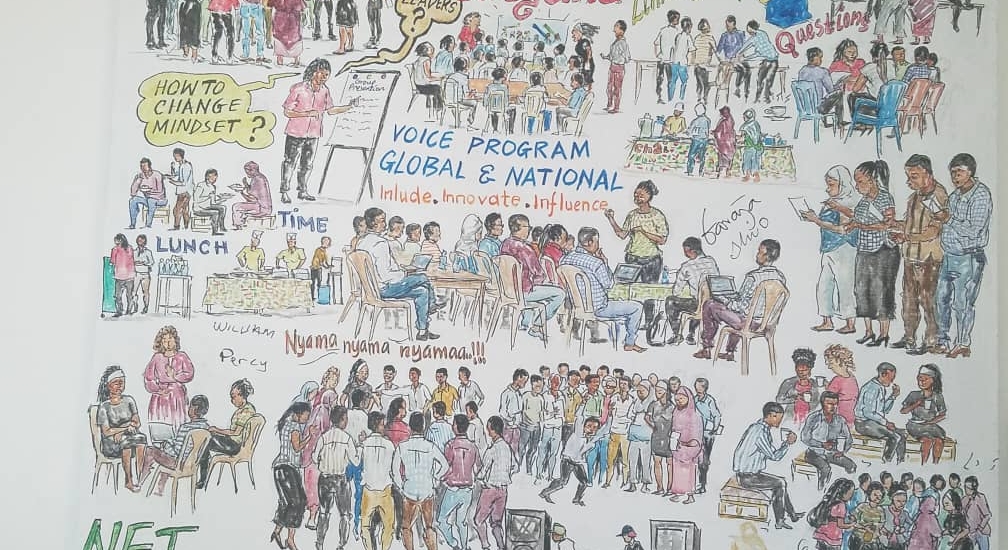 LEADERS
?
Questions
HOW TO
CHANGE
MINDSET ?
Group
Presentation
VOICE PROGRAM
GLOBAL & NATIONAL
Inlude. Innovate. Influence
Chai
TIME
LUNCH
WILLIAM
Percy
Nyama nyama nyamaa..!!!
NET